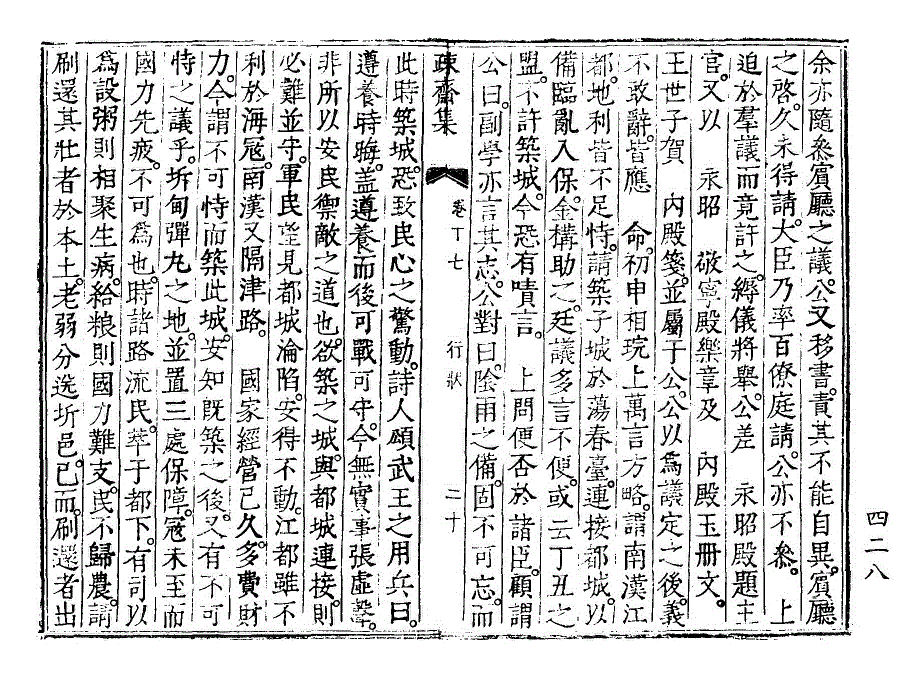 余亦隨參賓廳之議。公又移書。責其不能自異。賓廳
之啓。久未得請。大臣乃率百僚庭請。公亦不參。 上
迫於羣議而竟許之。縟儀將擧。公差 永昭殿題主
官。又以 永昭 敬寧殿樂章及 內殿玉冊文。
王世子賀 內殿箋。並屬于公。公以爲議定之後。義
不敢辭。皆應 命。初申相琓上萬言方略。謂南漢江
都。地利皆不足恃。請築子城於蕩春臺。連接都城。以
備臨亂入保。金構助之。廷議多言不便。或云丁丑之
盟。不許築城。今恐有嘖言。 上問便否於諸臣。顧謂
公曰。副學亦言其志。公對曰。陰雨之備。固不可忘。而
疎齋集 卷丁七 行狀 二十
此時築城。恐致民心之驚動。詩人頌武王之用兵曰。
遵養時晦。蓋遵養而後可戰可守。今無實事張虛聲。
非所以安民禦敵之道也。欲築之城。與都城連接。則
必難並守。軍民望見都城淪陷。安得不動。江都雖不
利於海寇。南漢又隔津路。 國家經營已久。多費財
力。今謂不可恃而築此城。安知旣築之後。又有不可
恃之議乎。圻甸彈丸之地。並置三處保障。寇未至而
國力先疲。不可爲也。時諸路流民。萃于都下。有司以
爲設粥則相聚生病。給粮則國力難支。民不歸農。請
刷還其壯者於本土。老弱分送圻邑。已而。刷還者出
四二八